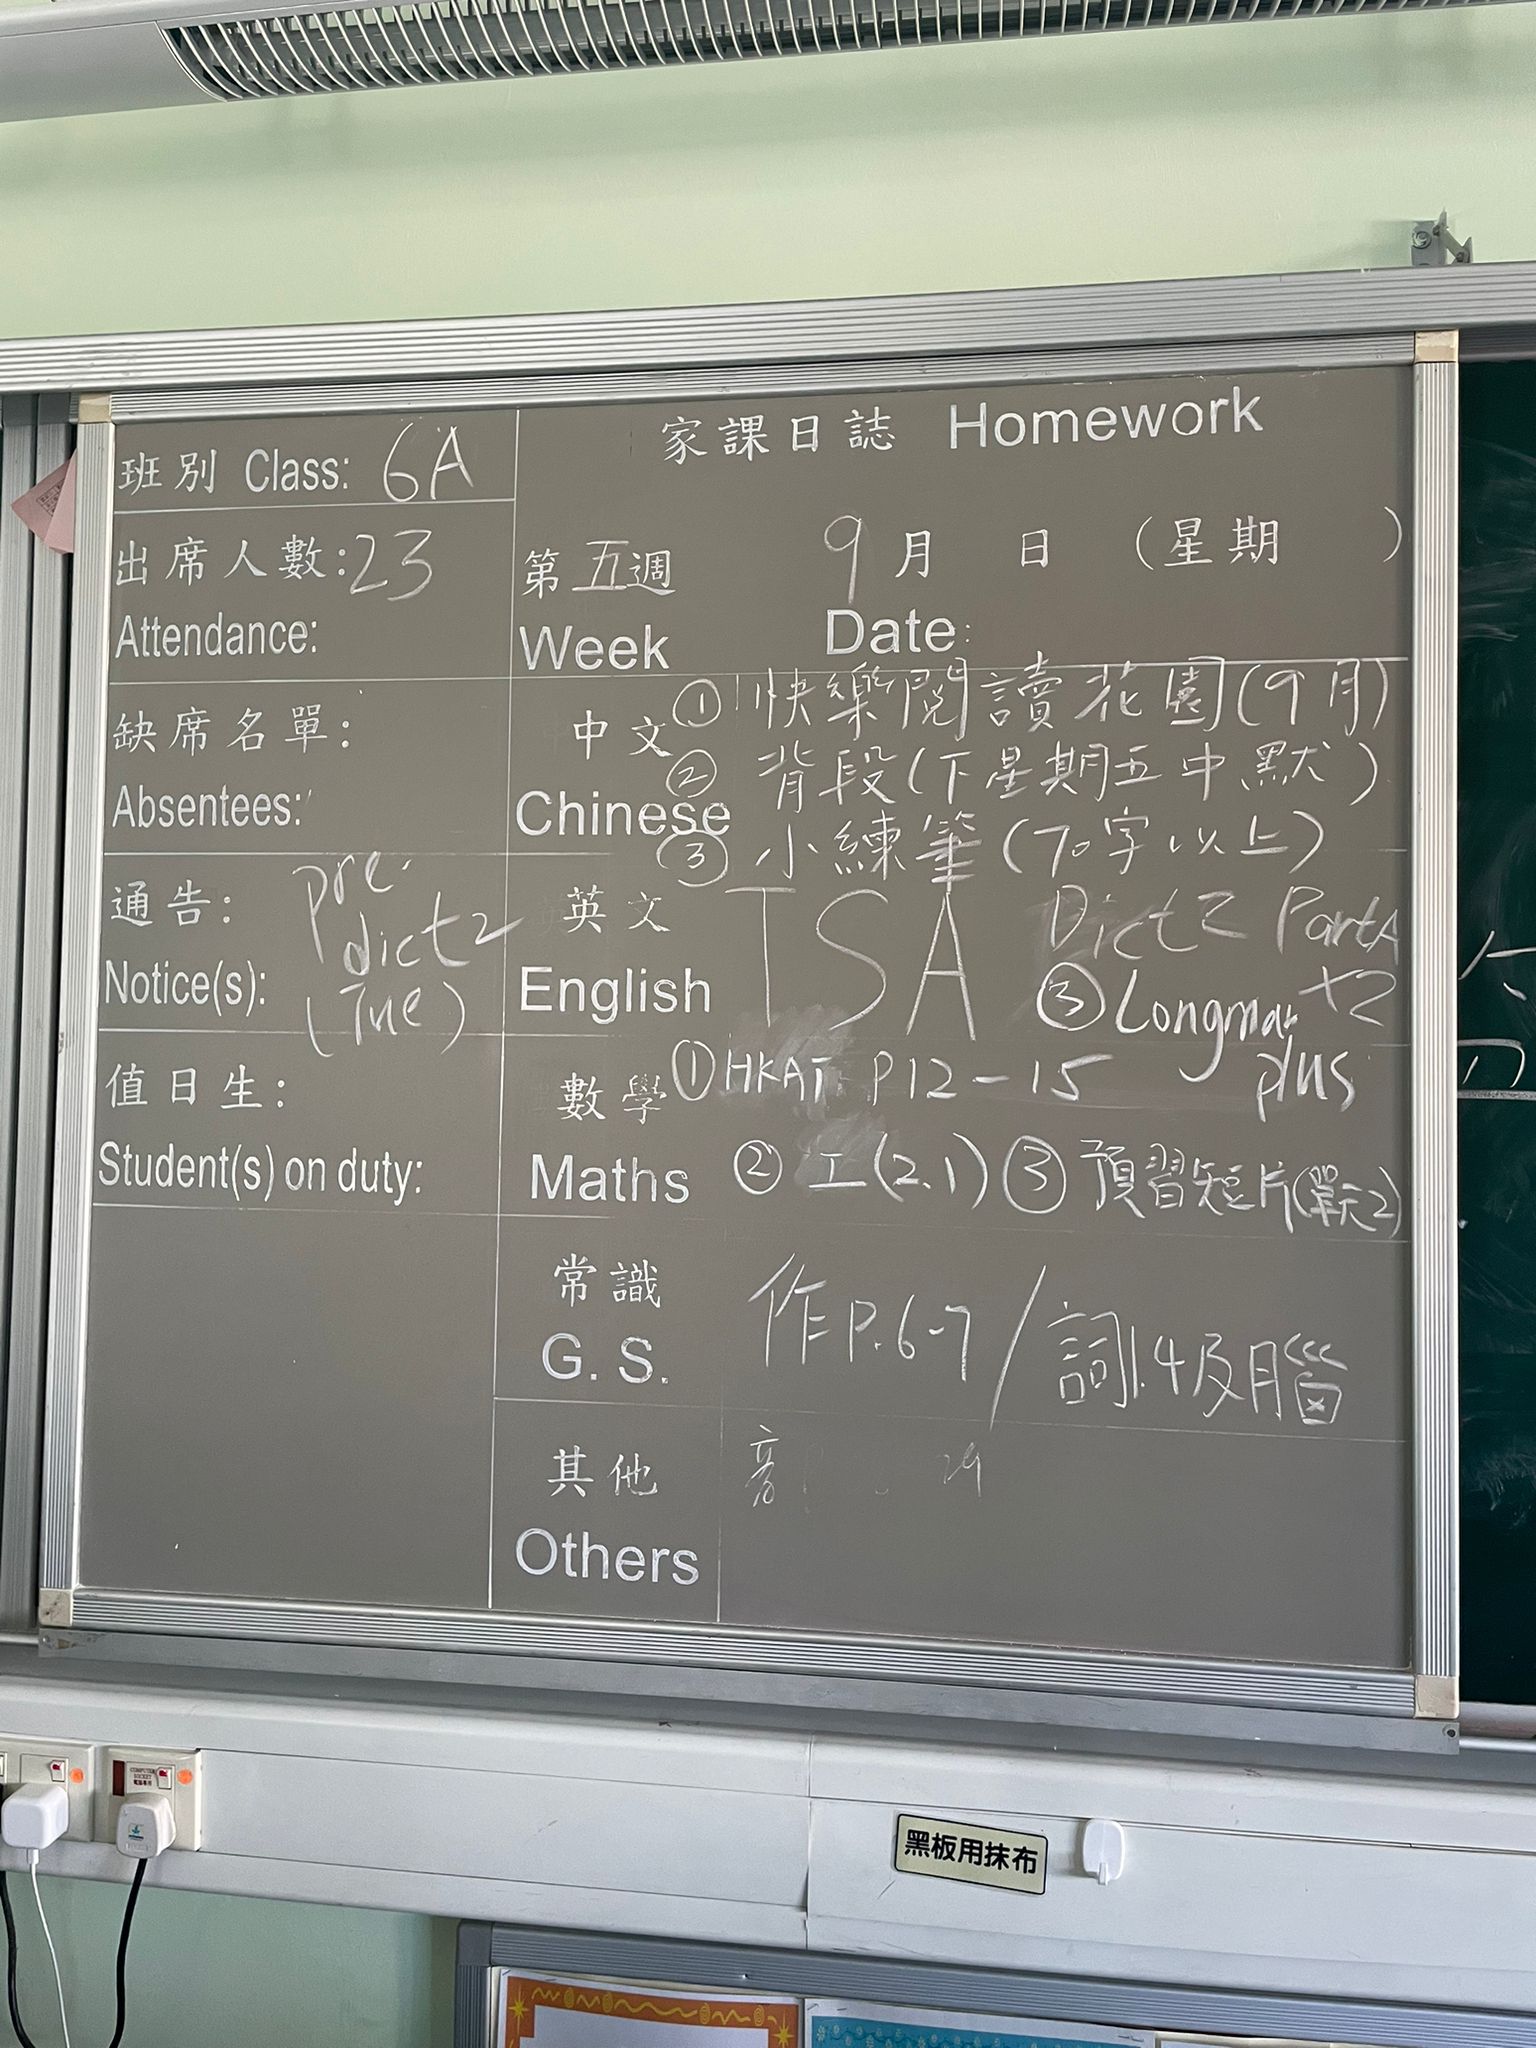 家課日誌 Homework
班別 Class: 6A
出席人數: 23
Attendance:
第五週
Week
9月 日 (星期 )
Date:
缺席名單:
Absentees:
通告:
Notice(s):
pre.
dict 2
(Tue)
值日生:
Student(s) on duty:
中文
Chinese
① 快樂閱讀花園(9月)
② 背段(下星期五中默)
③ 小練筆(70字以上)
英文
English
TSA Dict 2 Part A
x2
③ Longman
plus
數學
Maths
① HKAT P12-15
② 工(2.1) ③ 預習短片(單元2)
常識
G. S.
作P.6-7/詞1.4及腦
其他
Others
黑板用抹布